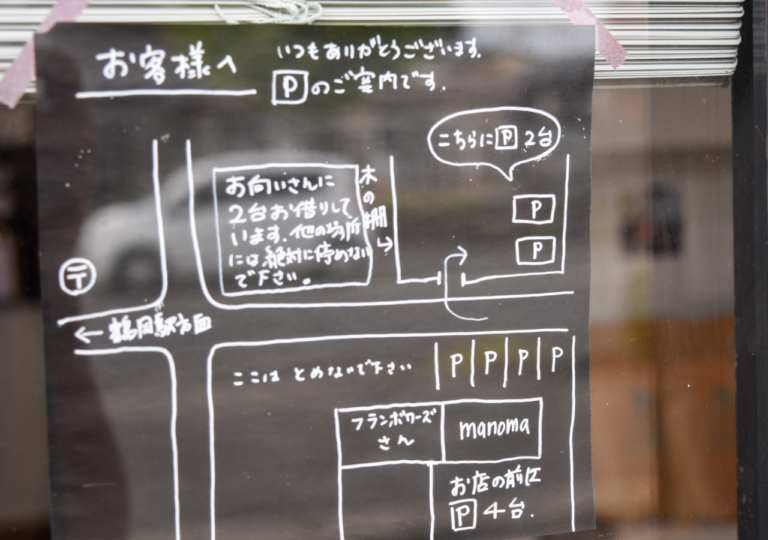 お客様へ
いつもありがとうございます。
Pのご案内です。
こちらにP2台
お向いさんに
2台お借りして
います。他の場所
には絶対に停めない
で下さい。
木の棚→
P
P
〒
←鶴岡駅方面
ここは とめないで下さい
P P P P
フランボワーズ
さん
manoma
お店の前に
P4台.